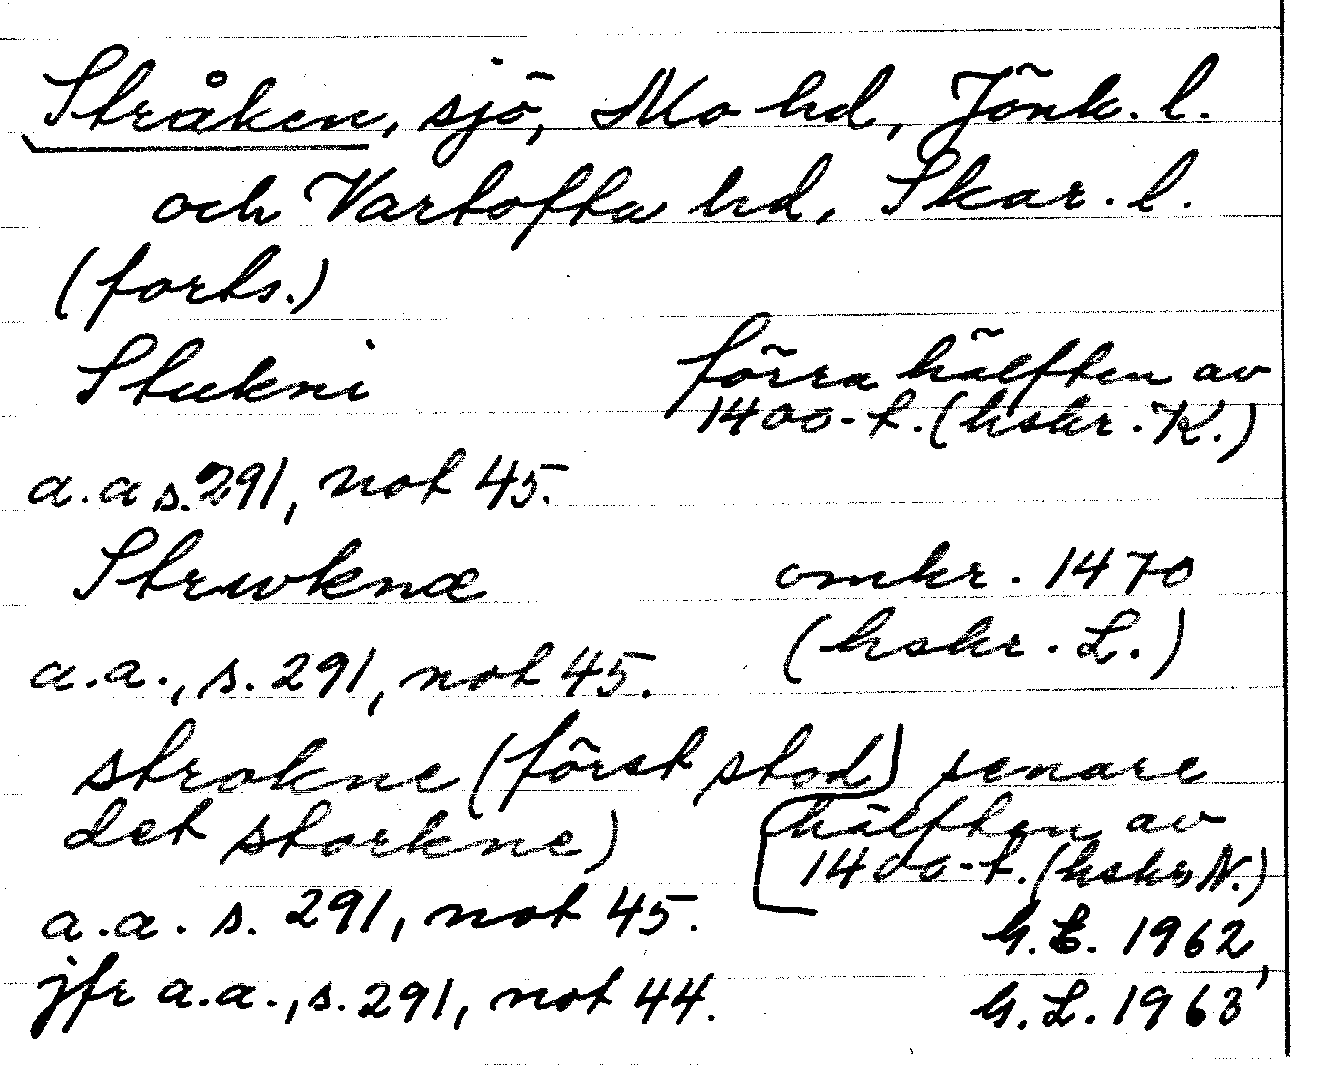 Stråken, sjö, Mo hd, Jönk. l.
och Vartofta hd, Skar. l.
(forts.)
Stukni förra hälften av
1400-t. (hskr. K.)
a.a s. 291, not 45.
Strwknæ omkr. 1470
(hskr. L.)
a.a., s. 291, not 45.
strokne (först stod senare
det storkne) hälften av
1400-t. (hskr N.)
a.a. s. 291, not 45.
G.L. 1962,
jfr a.a., s. 291, not 44.
G.L. 1963